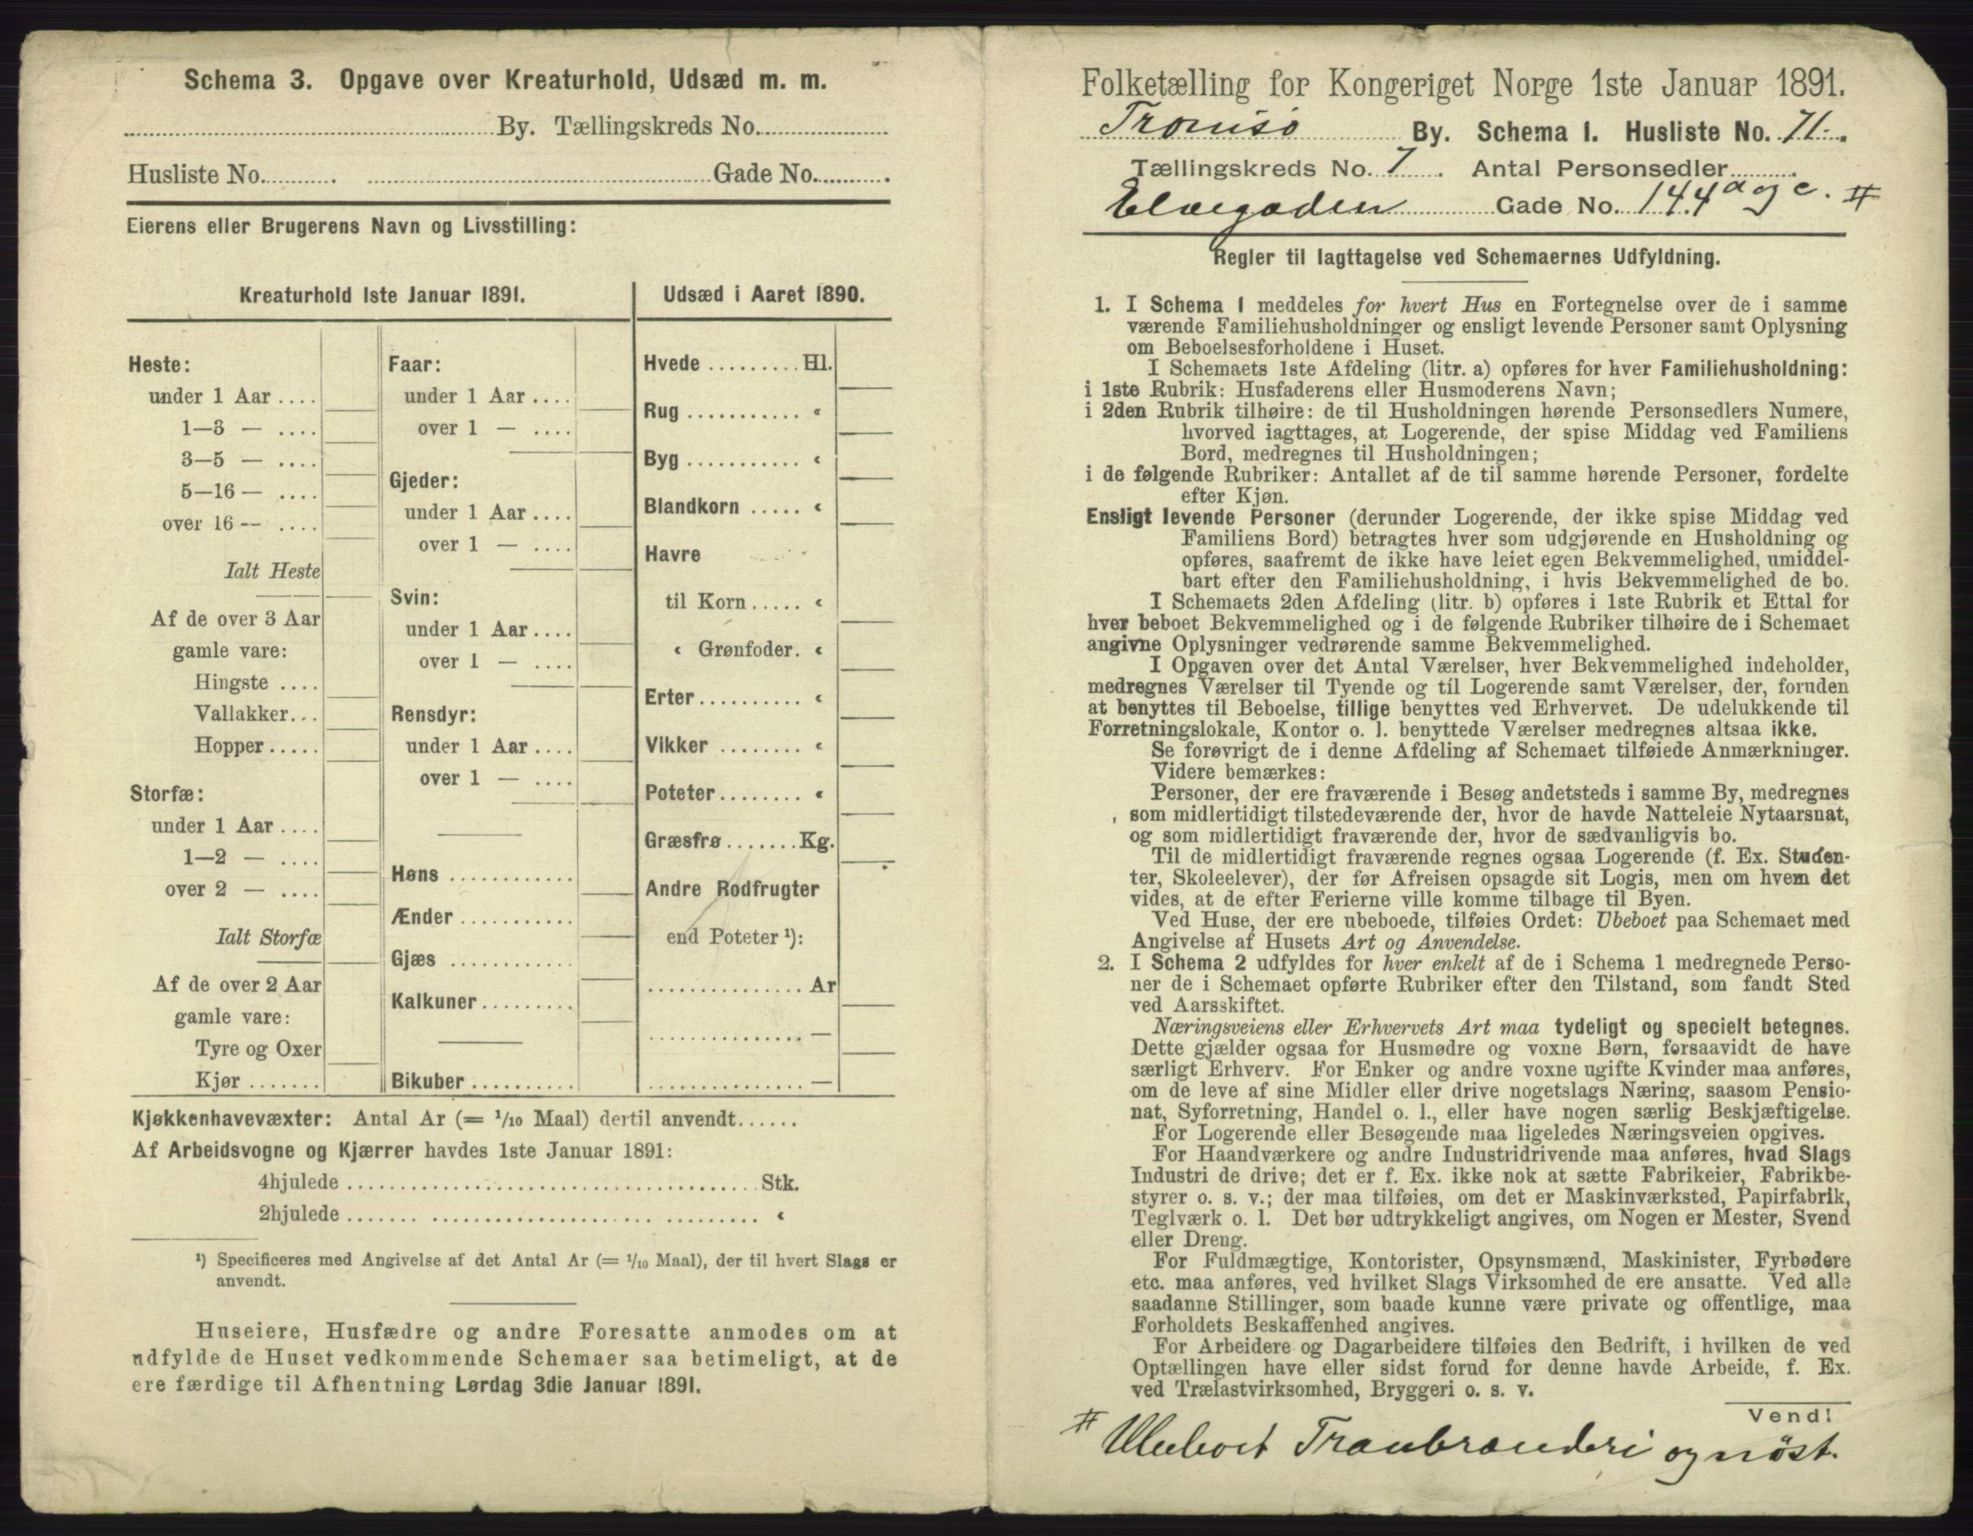 Schema 3. Opgave over Kreaturhold, Udsæd m. m.
By. Tællingskreds No.
Husliste No. Gade No.
Eierens eller Brugerens Navn og Livsstilling:
Kreaturhold 1ste Januar 1891.
Heste:
under 1 Aar ....
1—3 — ....
3—5 — ....
5—16 — ....
over 16 — ....
Ialt Heste
Af de over 3 Aar
gamle vare:
Hingste ....
Vallakker...
Hopper.....
Storfæ:
under 1 Aar ....
1—2 — ....
over 2 — ....
Ialt Storfæ
Af de over 2 Aar
gamle vare:
Tyre og Oxer
Kjør .......
Faar:
under 1 Aar ....
over 1 — ....
Gjeder:
under 1 Aar ....
over 1 — ....
Svin:
under 1 Aar ....
over 1 — ....
Rensdyr:
under 1 Aar ....
over 1 — ....
Høns ............
Ænder ...........
Gjæs ............
Kalkuner.........
Bikuber ..........
Udsæd i Aaret 1890.
Hvede ......... Hl.
Rug ........... «
Byg ........... «
Blandkorn ..... «
Havre
til Korn ..... «
« Grønfoder. «
Erter.......... «
Vikker ........ «
Poteter........ «
Græsfrø ....... Kg.
Andre Rodfrugter
end Poteter ¹):
............... Ar
............... —
............... —
Kjøkkenhavevæxter: Antal Ar (= 1/10 Maal) dertil anvendt......
Af Arbeidsvogne og Kjærrer havdes 1ste Januar 1891:
4hjulede ........................................ Stk.
2hjulede ........................................ «
¹) Specificeres med Angivelse af det Antal Ar (= 1/10 Maal), der til hvert Slags er
anvendt.
Huseiere, Husfædre og andre Foresatte anmodes om at
udfylde de Huset vedkommende Schemaer saa betimeligt, at de
ere færdige til Afhentning Lørdag 3die Januar 1891.
Folketælling for Kongeriget Norge 1ste Januar 1891.
Tromsø By. Schema 1. Husliste No. 71.
Tællingskreds No. 7. Antal Personsedler
Elvegaden Gade No. 144 a og c. #
Regler til Iagttagelse ved Schemaernes Udfyldning.
1. I Schema 1 meddeles for hvert Hus en Fortegnelse over de i samme
værende Familiehusholdninger og ensligt levende Personer samt Oplysning
om Beboelsesforholdene i Huset.
I Schemaets 1ste Afdeling (litr. a) opføres for hver Familiehusholdning:
i 1ste Rubrik: Husfaderens eller Husmoderens Navn;
i 2den Rubrik tilhøire: de til Husholdningen hørende Personsedlers Numere,
hvorved iagttages, at Logerende, der spise Middag ved Familiens
Bord, medregnes til Husholdningen;
i de følgende Rubriker: Antallet af de til samme hørende Personer, fordelte
efter Kjøn.
Ensligt levende Personer (derunder Logerende, der ikke spise Middag ved
Familiens Bord) betragtes hver som udgjørende en Husholdning og
opføres, saafremt de ikke have leiet egen Bekvemmelighed, umiddel-
bart efter den Familiehusholdning, i hvis Bekvemmelighed de bo.
I Schemaets 2den Afdeling (litr. b) opføres i 1ste Rubrik et Ettal for
hver beboet Bekvemmelighed og i de følgende Rubriker tilhøire de i Schemaet
angivne Oplysninger vedrørende samme Bekvemmelighed.
I Opgaven over det Antal Værelser, hver Bekvemmelighed indeholder,
medregnes Værelser til Tyende og til Logerende samt Værelser, der, foruden
at benyttes til Beboelse, tillige benyttes ved Erhvervet. De udelukkende til
Forretningslokale, Kontor o. l. benyttede Værelser medregnes altsaa ikke.
Se forøvrigt de i denne Afdeling af Schemaet tilføiede Anmærkninger.
Videre bemærkes:
Personer, der ere fraværende i Besøg andetsteds i samme By, medregnes
som midlertidigt tilstedeværende der, hvor de havde Natteleie Nytaarsnat,
og som midlertidigt fraværende der, hvor de sædvanligvis bo.
Til de midlertidigt fraværende regnes ogsaa Logerende (f. Ex. Studen-
ter, Skoleelever), der før Afreisen opsagde sit Logis, men om hvem det
vides, at de efter Ferierne ville komme tilbage til Byen.
Ved Huse, der ere ubeboede, tilføies Ordet: Ubeboet paa Schemaet med
Angivelse af Husets Art og Anvendelse.
2. I Schema 2 udfyldes for hver enkelt af de i Schema 1 medregnede Perso-
ner de i Schemaet opførte Rubriker efter den Tilstand, som fandt Sted
ved Aarsskiftet.
Næringsveiens eller Erhvervets Art maa tydeligt og specielt betegnes.
Dette gjælder ogsaa for Husmødre og voxne Børn, forsaavidt de have
særligt Erhverv. For Enker og andre voxne ugifte Kvinder maa anføres,
om de leve af sine Midler eller drive nogetslags Næring, saasom Pensio-
nat, Syforretning, Handel o. l., eller have nogen særlig Beskjæftigelse.
For Logerende eller Besøgende maa ligeledes Næringsveien opgives.
For Haandværkere og andre Industridrivende maa anføres, hvad Slags
Industri de drive; det er f. Ex. ikke nok at sætte Fabrikeier, Fabrikbe-
styrer o. s. v.; der maa tilføies, om det er Maskinværksted, Papirfabrik,
Teglværk o. l. Det bør udtrykkeligt angives, om Nogen er Mester, Svend
eller Dreng.
For Fuldmægtige, Kontorister, Opsynsmænd, Maskinister, Fyrbødere
etc. maa anføres, ved hvilket Slags Virksomhed de ere ansatte. Ved alle
saadanne Stillinger, som baade kunne være private og offentlige, maa
Forholdets Beskaffenhed angives.
For Arbeidere og Dagarbeidere tilføies den Bedrift, i hvilken de ved
Optællingen have eller sidst forud for denne havde Arbeide, f. Ex.
ved Trælastvirksomhed, Bryggeri o. s. v.
Vend!
# Ubeboet Tranbrænderi og nöst.